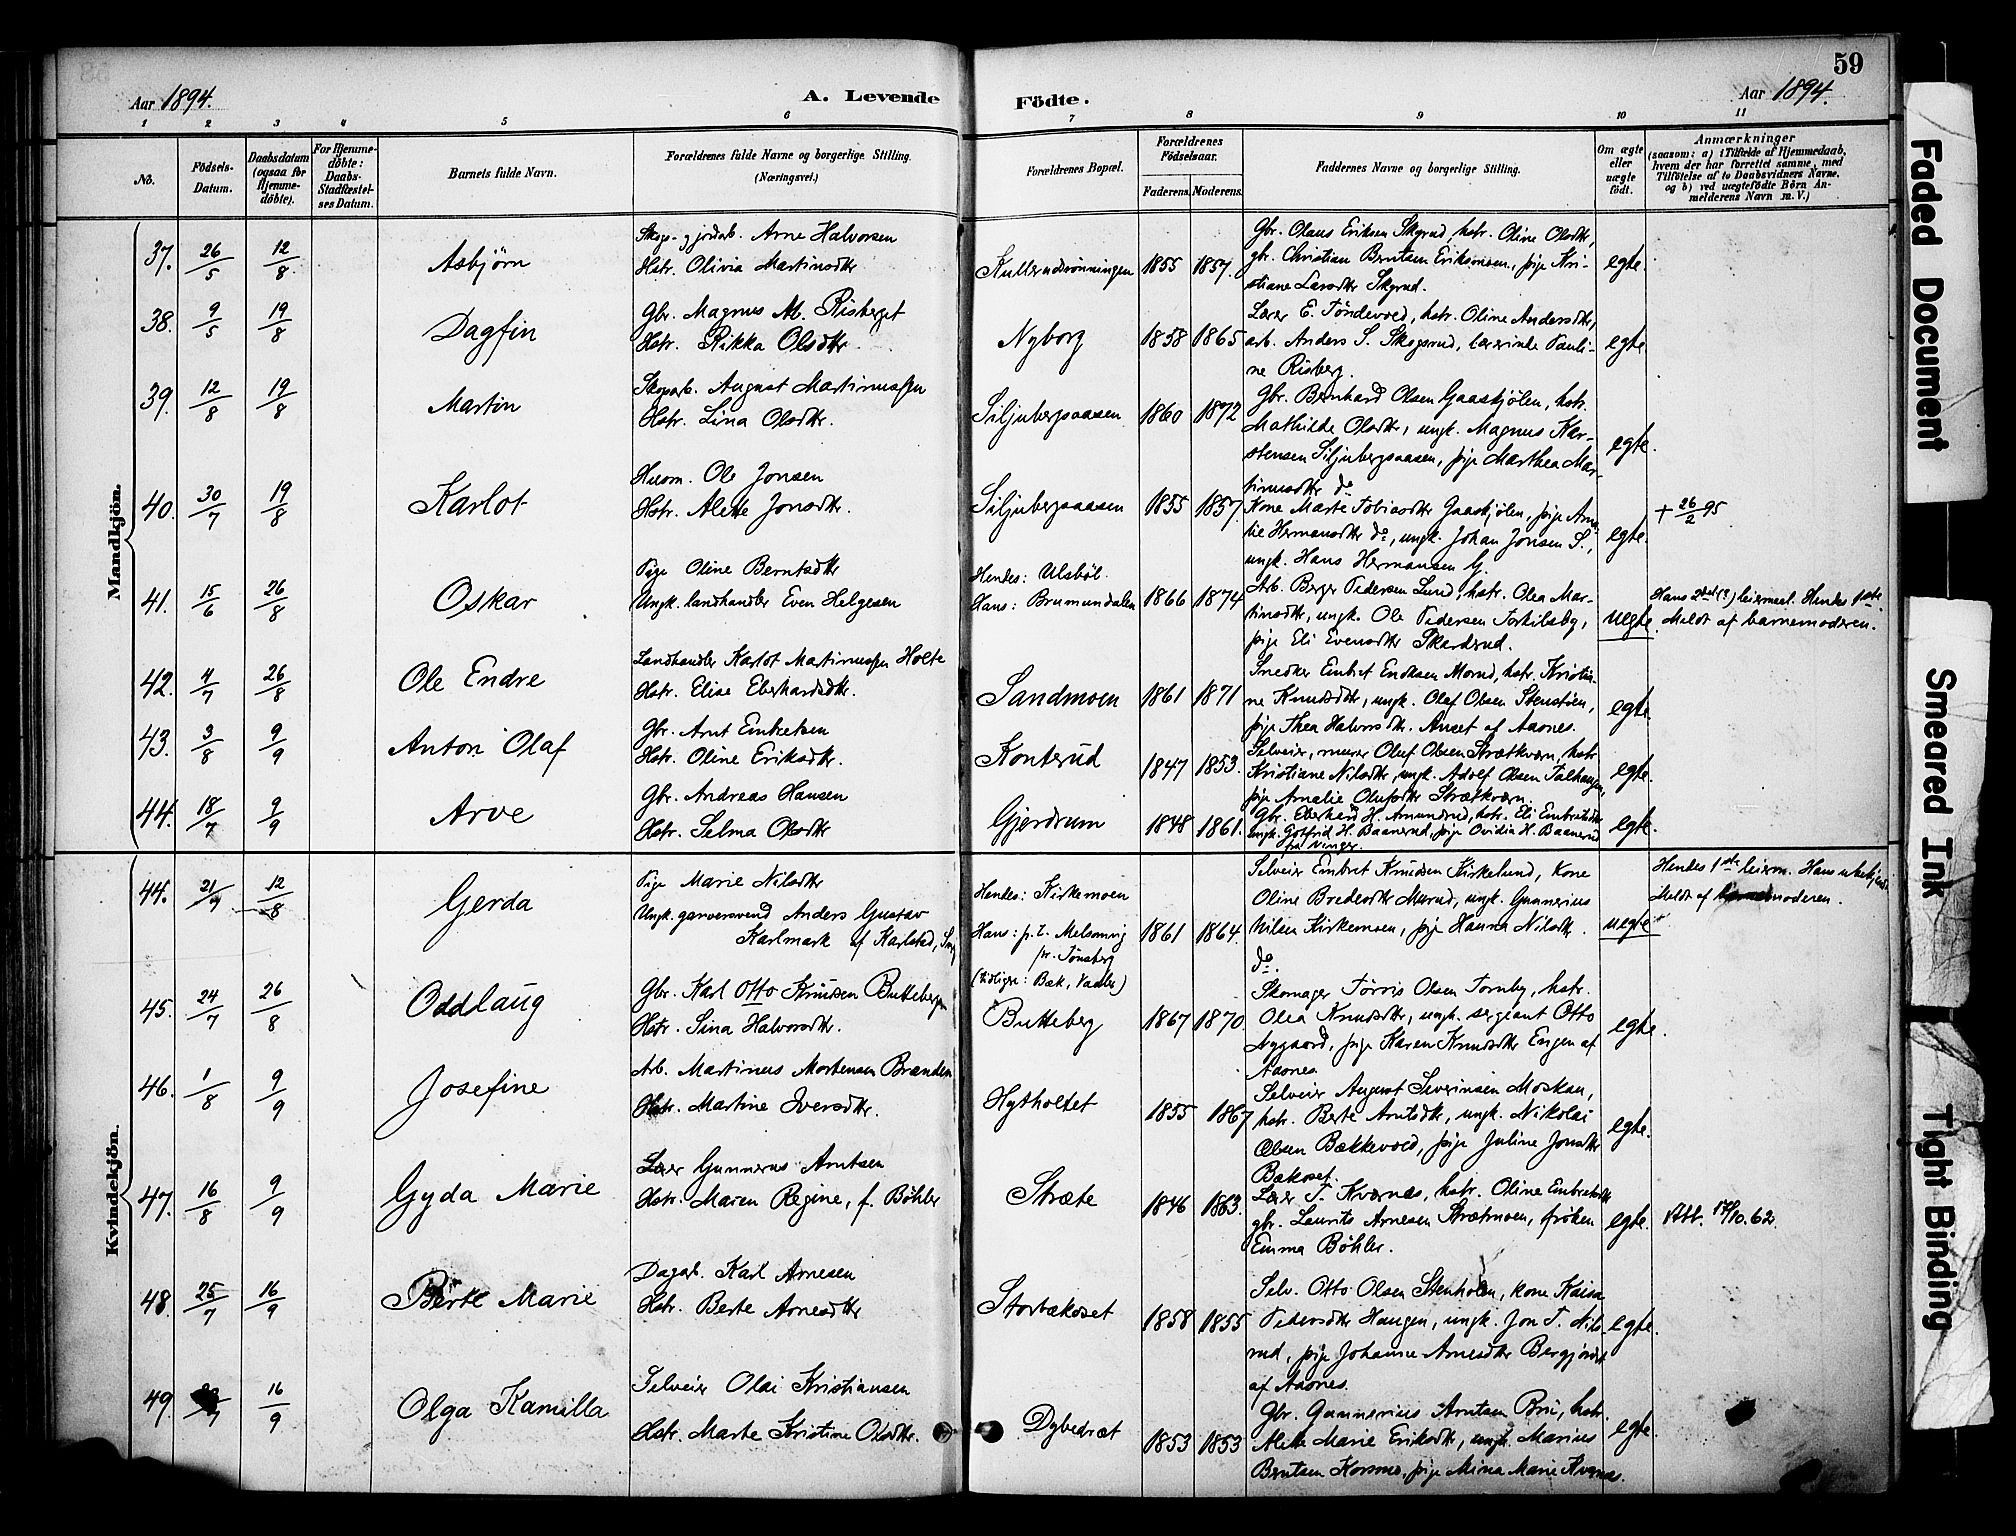 59
Aar 1894.
A. Levende
Födte.
Aar 1894.
1 2 3 4 5 6 7 8 9 10 11
No.
Födsels-
Datum.
Daabsdatum
(ogsaa for
Hjemme-
döbte).
For Hjemme-
döbte:
Daabs-
Stadfæstel-
ses Datum.
Barnets fulde Navn.
Forældrenes fulde Navne og borgerlige Stilling.
(Næringsvei.)
Forældrenes Bopæl.
Forældrenes
Födselsaar.
Faderens. Moderens.
Faddernes Navne og borgerlige Stilling.
Om ægte
eller
uægte
födt.
Anmærkninger
(saasom: a) i Tilfælde af Hjemmedaab,
hvem der har forrettet samme, med
Tilföielse af to Daabsvidners Navne,
og b) ved uægtefödte Börn An-
melderens Navn m. V.)
Mandkjön.
37. 26/5 12/8 Asbjörn
Skogs- og jordarb. Arne Halvorsen
Hstr. Olivia Martinsdtr
Kullerudsrönningen 1855 1857.
Gbr. Olaus Eriksen Skyrud, hstr. Oline Olsdtr,
gbr. Christian Berntsen Eriksmoen, pige Kri-
stiane Larsdtr Skyrud.
egte.
38. 9/5 19/8 Dagfin
Gbr. Magnus M. Risberget
Hstr. Rikka Olsdtr
Nyborg 1858 1865
Lærer E. Töndevold, hstr. Oline Andersdtr,
arb. Anders S. Skogsrud, lærerinde Pauli-
ne Risberg.
egte
39. 12/8 19/8 Martin
Skogarb. August Martinussen
Hstr. Lina Olsdtr.
Siljubergsaasen 1860 1872
Gbr. Bernhard Olsen Gaaskjölen, hstr.
Mathilde Olsdtr, ungk. Magnus Kar-
stensen Siljubergsaasen, pige Marthea Mar-
tinusdtr do
egte.
40. 30/7 19/8 Karlot
Husm. Ole Jonsen
Hstr. Alette Jonsdtr.
Siljubergsaasen 1855 1857.
Kone Marte Tobiasdtr Gaaskjölen, pige
Hermansdtr do, ungk. Johan Jonsen S.,
ungk. Hans Hermansen G.
egte.
+ 26/2 95
41. 15/6 26/8 Oskar
Pige Oline Berntsdtr
Ungk. landhandler Even Helgesen
Hendes: Ulsböl
Hans: Brumundalen 1866 1874
Arb. Berger Pedersen Lund, hstr. Olea Mar-
tinsdtr, ungk. Ole Pedersen Torkilsby,
pige Eli Evensdtr Skarderud.
uegte.
Hans 2det (?) leiermaal. Hendes 1ste.
Meldt af barnemoderen.
42. 4/7 26/8 Ole Endre
Landhandler Karlot Martinussen Holte
Hstr. Elise Eberhardsdtr.
Sandmoen 1861 1871
Snedker Embret Endresen Morud, hstr. Kristia-
ne Knudsdtr, ungk. Olaf Olsen Stenstöen,
pige Thea Halvorsdtr. Anset af Aasnes.
egte
43. 3/8 9/9 Anton Olaf
Gbr. Arnt Embretsen
Hstr. Oline Eriksdtr.
Konterud 1847 1853.
Selveier, murer Oluf Olsen Strætkværn, hstr
Kristiane Nilsdtr, ungk. Adolf Olsen Talhaugen,
pige Amalie Olufsdtr Strætkværn.
egte.
44. 18/7 9/9 Arve
Gbr. Andreas Hansen
Hstr. Selma Olsdtr
Gjerdrum 1848 1861.
Gbr. Eberhard H. Amundrud, hstr. Eli Embretsdtr
ungk. Gotfrid H. Baanerud, pige Ovidia H. Baanerud
fra Vinger.
egte.
Kvindekjön.
44. 21/7 12/8 Gerda
Pige Marie Nilsdtr
Ungk. garversvend Anders Gustav
Karlmark af Karlstad,
Hendes: Kirkemoen
Hans: p.t. Melsomvig
pr. Tönsberg
(tidligere: Bæk, Vaaler)
1861 1864.
Selveier Embret Knudsen Kirkelund, kone
Oline Bredesdtr Murud, ungk. Gunnerius
Nilsen Kirkemoen, pige Hanna Nilsdtr.
do.
uegte
Hendes 1ste leierm. Hans ubekjendt
Meldt af barnemoderen.
45. 24/7 26/8 Oddlaug
Gbr. Karl Otto Knudsen Butteberg
Hstr. Sina Halvorsdtr.
Butteberg 1867 1870
Skomager Törris Olsen Tornby, hstr.
Olea Knudsdtr, ungk. sergiant Otto
Nygaard, pige Karen Knudsdtr Engen af
Aasnes
egte.
46. 1/8 9/9 Josefine
Arb. Martinus Mortensen Branden
Hstr. Martine Iversdtr.
Hytholtet 1855 1867
Selveier August Severinsen Moskau,
hstr. Berte Arntsdtr, ungk. Nikolai
Olsen Bækkevold, pige Juline Jonsdtr
Bakoset.
egte.
47. 16/8 9/9 Gyda Marie
Lærer Gunnerus Arntsen
Hstr. Maren Regine, f. Böhler
Stræte 1846 1863.
Lærer T. Kværnæs, hstr. Oline Embretsdtr
gbr. Laurits Arnesen Strætmoen, fröken
Emma Böhler.
egte.
Att. 17/10.62.
48. 25/7 16/9 Berte Marie
Dagarb. Karl Arnesen
Hstr. Berte Arnesdtr
Storbækoset 1858 1855
Selv. Otto Olsen Stenholen, kone Kaisa
Pedersdtr Haugen, ungk. Jon T. Nils-
rud, pige Johanne Arnesdtr Bergjordet
af Aasnes.
egte.
49. /7 16/9 Olga Kamilla
Selveier Olai Kristiansen
Hstr. Marte Kristine Olsdtr.
Dybedræt 1853 1853
Gbr. Gunnerius Arntsen Bru, hstr.
Alette Marie Eriksdtr, ungk. Marius
Berntsen Korsmo, pige Mina Marie Kværnæs.
egte.
Faded Document
Smeared Ink
Tight Binding